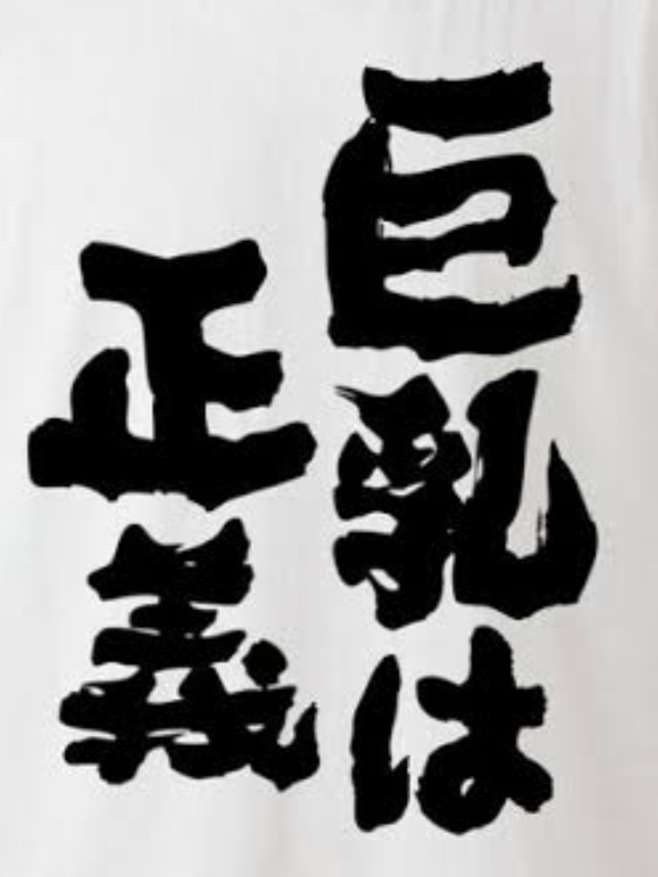 巨乳は
正義